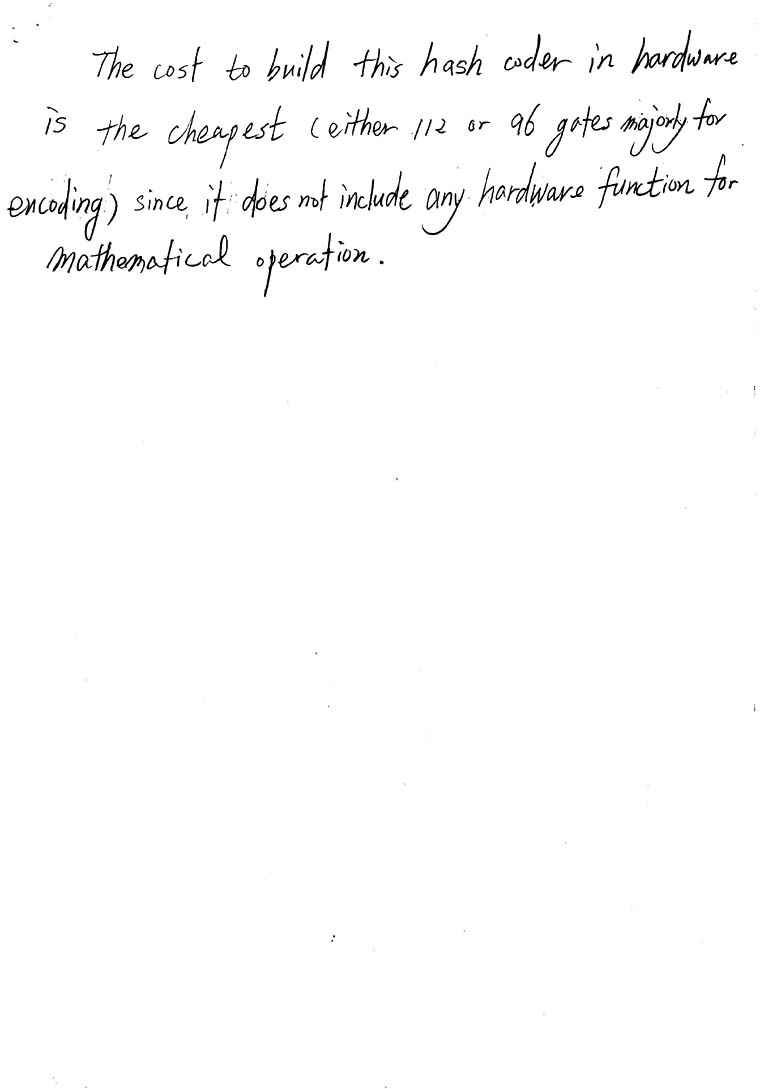 The cost to build this hash coder in hardware
is the cheapest (either 112 or 96 gates majorly for
encoding) since it does not include any hardware function for
mathematical operation.